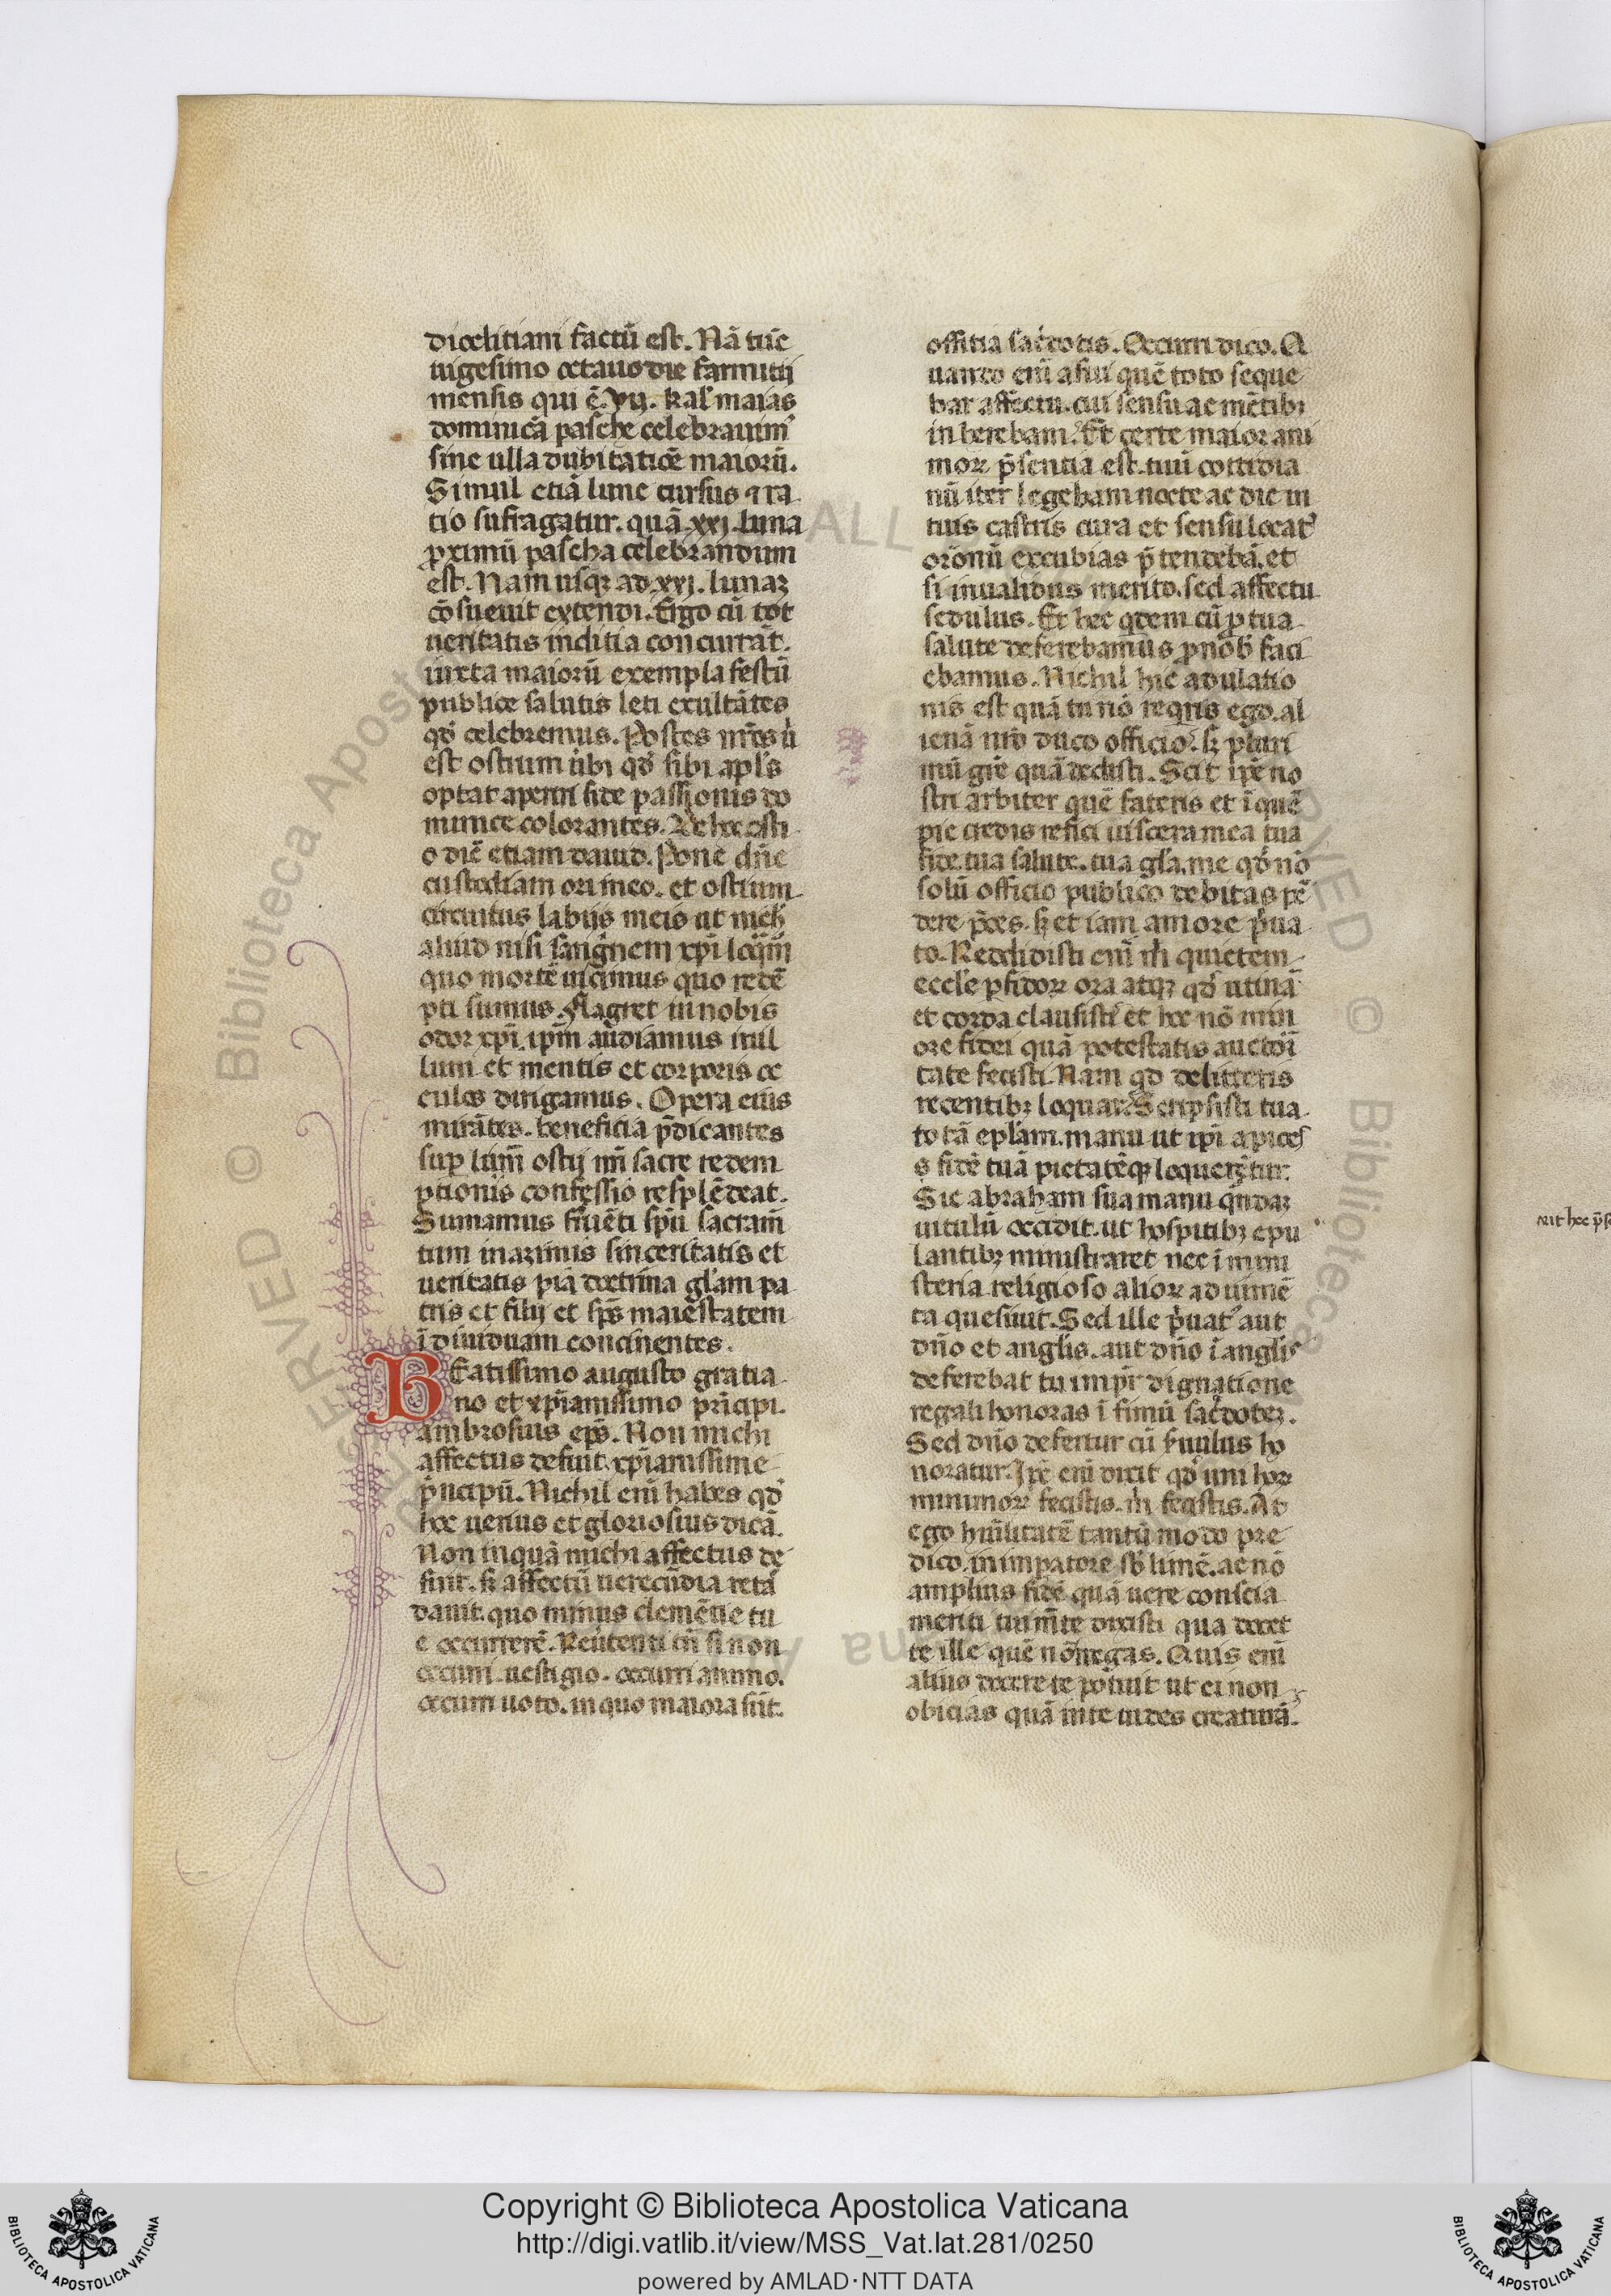 dioclitiani factũ est. Nã tũc
uigesimo octauo die farmutij
mensis qui ẽ. VII. kal' maias
dominicã pasche celebrauimꝰ
sine ulla dubitatiõe maiorũ.
Simul etiã lune cursus ⁊ ra
tio sufragatur. quã .xxj. luna
ꝓximũ pascha celebrandum
est. Nam usqꝫ ad .xxj. lunaꝫ
cõsueuit extendi. Ergo cũ tot
ueritatis inditia concurrãt.
iuxta maiorũ exempla festũ
publice salutis leti exultãtes
qd̕ celebremus. Postes
est ostium ubi qd̕ sibi apl's
optat aperiri fide passionis do
minice colorantes. De hoc osti
o diẽ etiam dauid. Pone dñe
custodiam ori meo. et ostium
circuitus labijs meis ut
aliud nisi sanguinem xp̃i
quo mortẽ uicimus quo redẽ
pti sumus. Flagret in nobis
odor xp̃i. ip̃m audiamus in il
lum et mentis et corporis oc
culos dirigamus. Opera eius
mirãtes. beneficia p̃dicantes
sup lum̃ ostij nr̃i sacre redem
ptionis confessio resplẽdeat.
Sumamus
tum in azimis sinceritatis et
ueritatis pia doctrina gl'am pa
tris et filij et sp̃s maiestatem
ĩdiuiduam concinentes.
BEatissimo augusto gratia
no et xp̃ianissimo pr̃icipi.
ambrosius ep̃s. Non michi
affectus defuit. xp̃ianissime
p̃ncipũ. Nichil enĩ habeo qd̕
hoc uerius et gloriosius dicã.
Non inquã michi affectus de
fuit. sꝫ affectũ uerecũdia retã
dauit. quo minus clemẽtie tu
e occurrerẽ. Reuertenti tñ si non
occurri uestigio. occurri animo.
occurri uoto. in quo maiora sũt
offitia sac̃dotis. Occurri dico. Q
uando enĩ afui quẽ toto seque
bar affectu. cui sensu ac mẽtibꝫ
in herebam. Et certe maior ani
moꝝ p̃sentia est. tuũ cottidia
nũ iter legebam nocte ac die in
tuis castris cura et sensu locatꝰ
or̃onũ excubias p̃tendebã. et
si inualidus merito. sed affectu
sedulus. Et hec qdem cũ ꝓ tua
salute deferebamus ꝓ nob̕ faci
ebamus. Nichil hic adulatio
nis est quã tu nõ reqris ego. al
ienã nr̃o duco officio. sꝫ pluri
mũ gr̃e quã dedisti. Scit ip̃e no
stri arbiter quẽ fateris et ĩ quẽ
pie credis refici uiscera mea tua
fide. tua salute. tua gl'a. me qd̕ nõ
solũ officio publico debitas pẽ
dere p̃ces. sꝫ et iam amore p̃ua
to. Reddidisti enĩ m̃ quietem
eccl'e pfidoꝝ ora atqꝫ qd̕ utinã
et corda clausisti et hoc nõ min
ore fidei quã potestatis auctori
tate fecisti. Nam qd de litteris
recentibꝫ loquar. Scripsisti tua
totã epl'am. manu ut ip̃i apices
s fidẽ tuã pietatẽqꝫ loquerẽtur.
Sic abraham sua manu qñdaꝫ
uitulũ occidit. ut hospitibꝫ epu
lantibꝫ ministraret nec ĩ mini
steria religioso alioꝝ ad uimẽ
ta quesiuit. Sed ille p̃uatꝰ aut
dño et anglis. aut dño ĩ anglis
deferebat tu imp̃r dignatione
regali honoras ĩ fimũ sac̃doteꝫ.
Sed dño defertur cũ s̃uulus ho
noratur. Ip̃e enĩ dixit qd̕ uni hoꝝ
minimoꝝ fecistis. m̃ fecistis. At
ego hũilitatẽ tantũ modo pre
dico. in imꝑatore sb̕limẽ. ac nõ
amplius fidẽ quã uere conscia
meriti tui mẽte dixisti qua docet
te ille quẽ nõ negas. Quis enĩ
alius docere te potuit ut ei non
obicias quã in te uides creaturã.
Copyright © Biblioteca Apostolica Vaticana
http://digi.vatlib.it/view/MSS_Vat.lat.281/0250
powered by AMLAD·NTT DATA
BIBLIOTECA APOSTOLICA VATICANA
BIBLIOTECA APOSTOLICA VATICANA